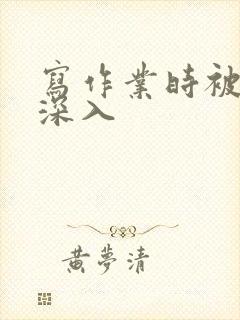 寫作業時被
深入
黃夢清